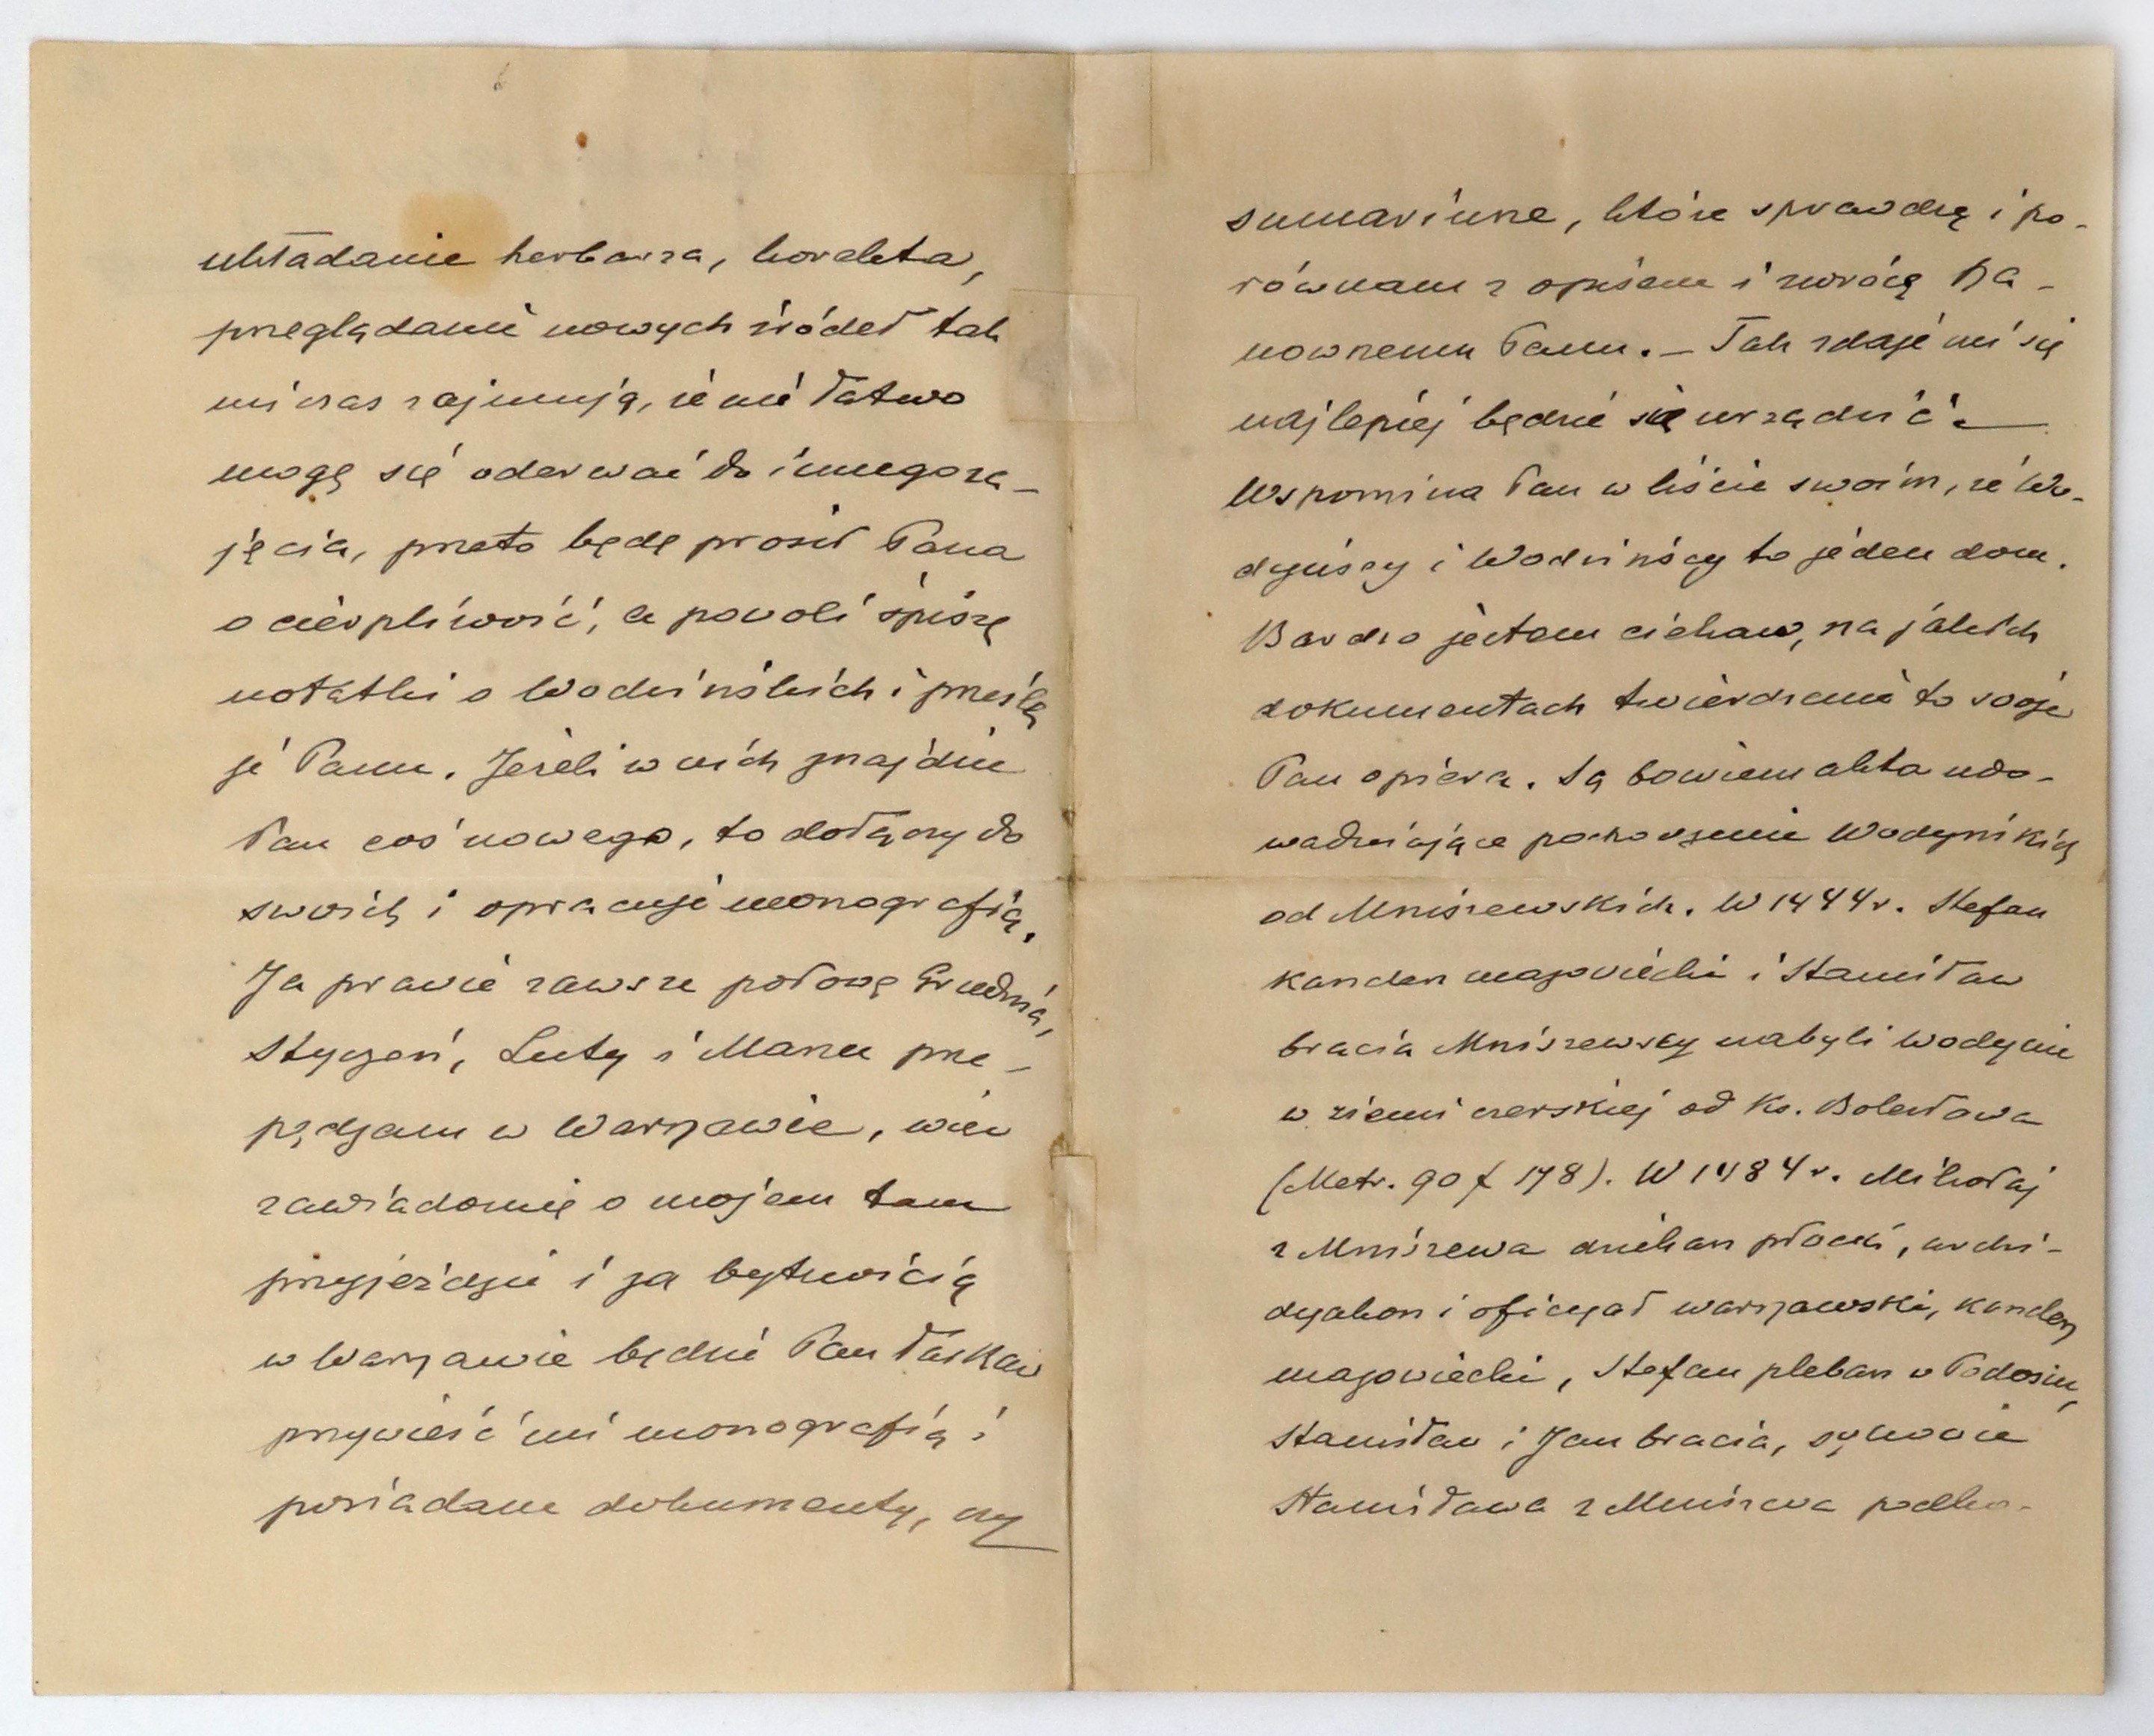 układanie herbarza, korekta,
przeglądanie nowych źródeł tak
mi czas zajmują, że nie łatwo
mogę się oderwać do innego za-
jęcia, przeto będę prosił Pana
o cierpliwość, a powoli spiszę
notatki o Wodzińskich i prześlę
je Panu. Jeżeli w nich znajdzie
Pan coś nowego, to dołączy do
swoich i opracuje monografią.
Ja prawie zawsze połowę Grudnia,
Styczeń, Luty i Marzec prze-
pędzam w Warszawie, więc
zawiadomię o mojem tam
przyjeździe i za bytnością
w Warszawie będzie Pan łaskaw
przywieść mi monografią i
posiadane dokumenty, czy
sumariusze, które sprawdzę i po-
równam z opisem i zwrócę Sza-
nownemu Panu. — Tak zdaje mi się
najlepiej będzie się urządzić. —
Wspomina Pan w liście swoim, że Wo-
dyńscy i Wodzińscy to jeden dom.
Bardzo jestem ciekaw, na jakich
dokumentach twierdzenie to swoje
Pan opiera. Są bowiem akta udo-
wadniające pochodzenie Wodyńskich
od Mniszewskich. W 1444 r. Stefan
kanclerz mazowiecki i Stanisław
bracia Mniszewscy nabyli Wodynie
w ziemi czerskiej od Ks. Bolesława
(Metr. 90 f 178). W 1484 r. Mikołaj
z Mniszewa dziekan płocki, archi-
dyakon i oficyał warszawski, kanclerz
mazowiecki, Stefan pleban w
Stanisław i Jan bracia, synowie
Stanisława z Mniszewa podko-